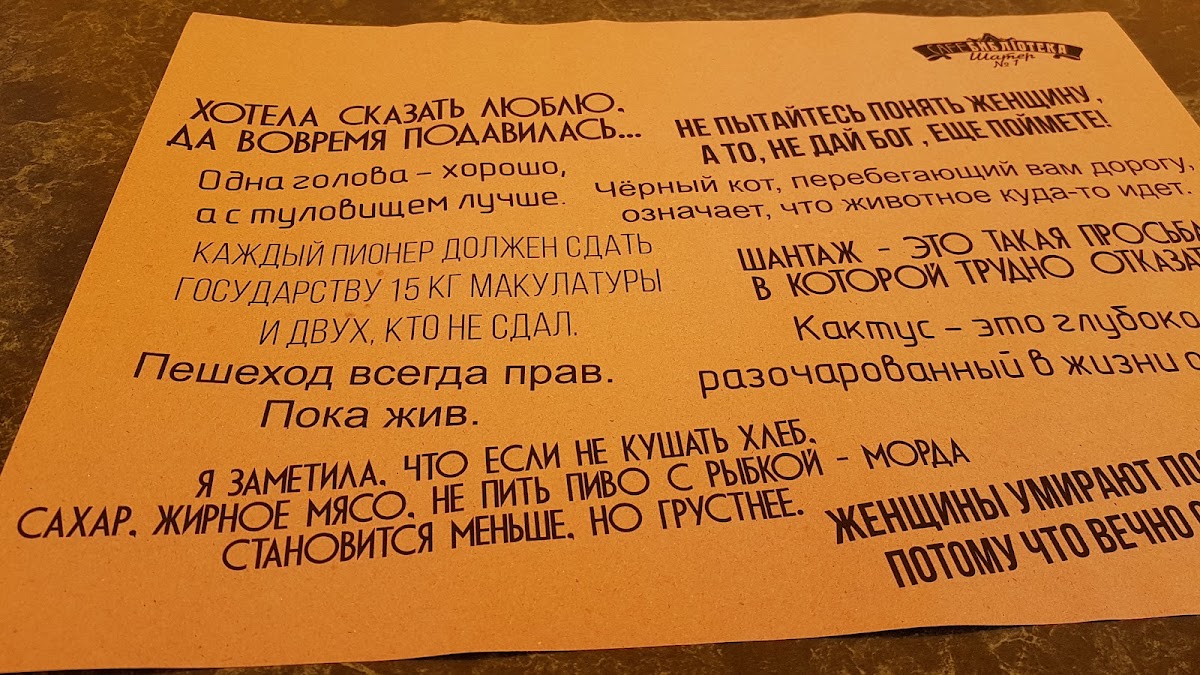 CAFE БИБЛІОТЕКА
Шатер
№1
ХОТЕЛА СКАЗАТЬ ЛЮБЛЮ,
ДА ВОВРЕМЯ ПОДАВИЛАСЬ...
Одна голова – хорошо,
а с туловищем лучше.
КАЖДЫЙ ПИОНЕР ДОЛЖЕН СДАТЬ
ГОСУДАРСТВУ 15 КГ МАКУЛАТУРЫ
И ДВУХ, КТО НЕ СДАЛ.
Пешеход всегда прав.
Пока жив.
Я ЗАМЕТИЛА, ЧТО ЕСЛИ НЕ КУШАТЬ ХЛЕБ,
САХАР, ЖИРНОЕ МЯСО, НЕ ПИТЬ ПИВО С РЫБКОЙ – МОРДА
СТАНОВИТСЯ МЕНЬШЕ, НО ГРУСТНЕЕ.
НЕ ПЫТАЙТЕСЬ ПОНЯТЬ ЖЕНЩИНУ ,
А ТО, НЕ ДАЙ БОГ , ЕЩЕ ПОЙМЕТЕ!
Чёрный кот, перебегающий вам дорогу,
означает, что животное куда-то идет.
ШАНТАЖ – ЭТО ТАКАЯ ПРОСЬБА
В КОТОРОЙ ТРУДНО
Кактус – это
разочарованный в жизни
ЖЕНЩИНЫ УМИРАЮТ
ПОТОМУ ЧТО ВЕЧНО